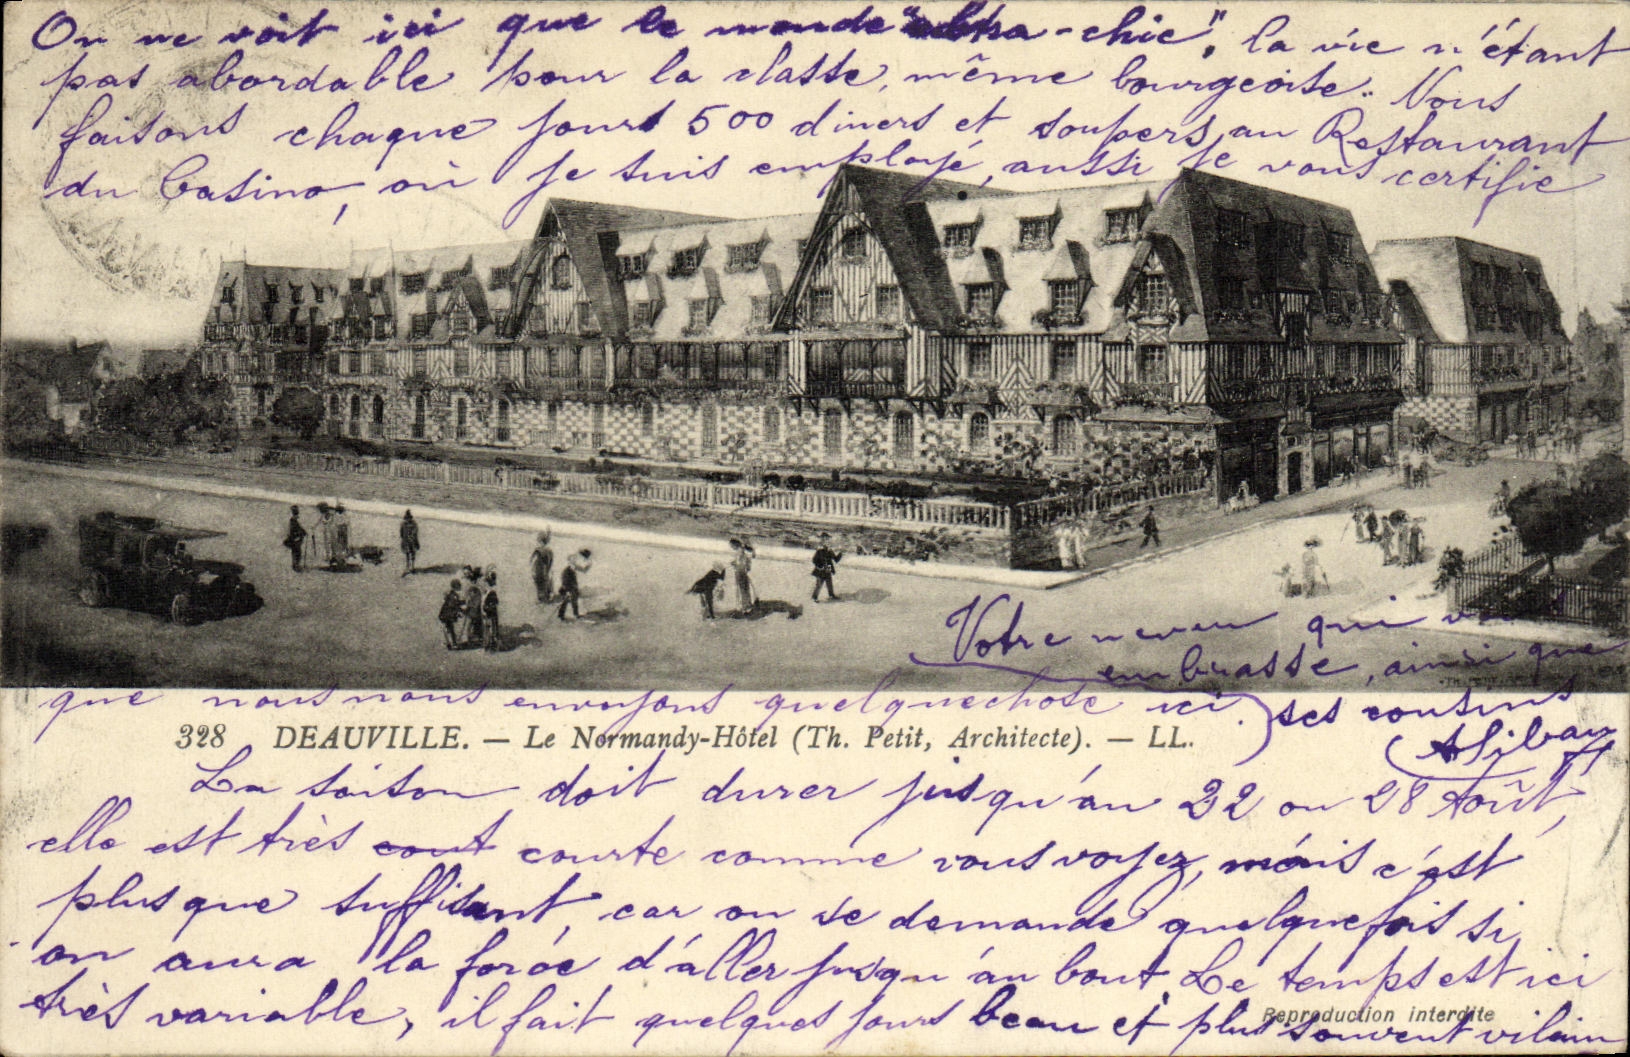 On ne voit ici que le monde "ultra-chic", la vie n'étant
pas abordable pour la classe, même bourgeoise. Nous
faisons chaque jours 500 diners et soupers, au Restaurant
du Casino, où je suis employé, aussi je vous certifie
que nous nous envoyons quelquechose ici.
Votre neveu qui vous
embrasse, ainsi que
ses cousins
328 DEAUVILLE. — Le Normandy-Hôtel (Th. Petit, Architecte). — LL.
La saison doit durer jusqu'au 22 ou 28 Août,
elle est très cout courte comme vous voyez, mais c'est
plus que suffisant, car on se demande quelquefois si
on aura la force d'aller jusqu'au bout. Le temps est ici
très variable, il fait quelques jours beau et plus souvent vilain
Reproduction interdite